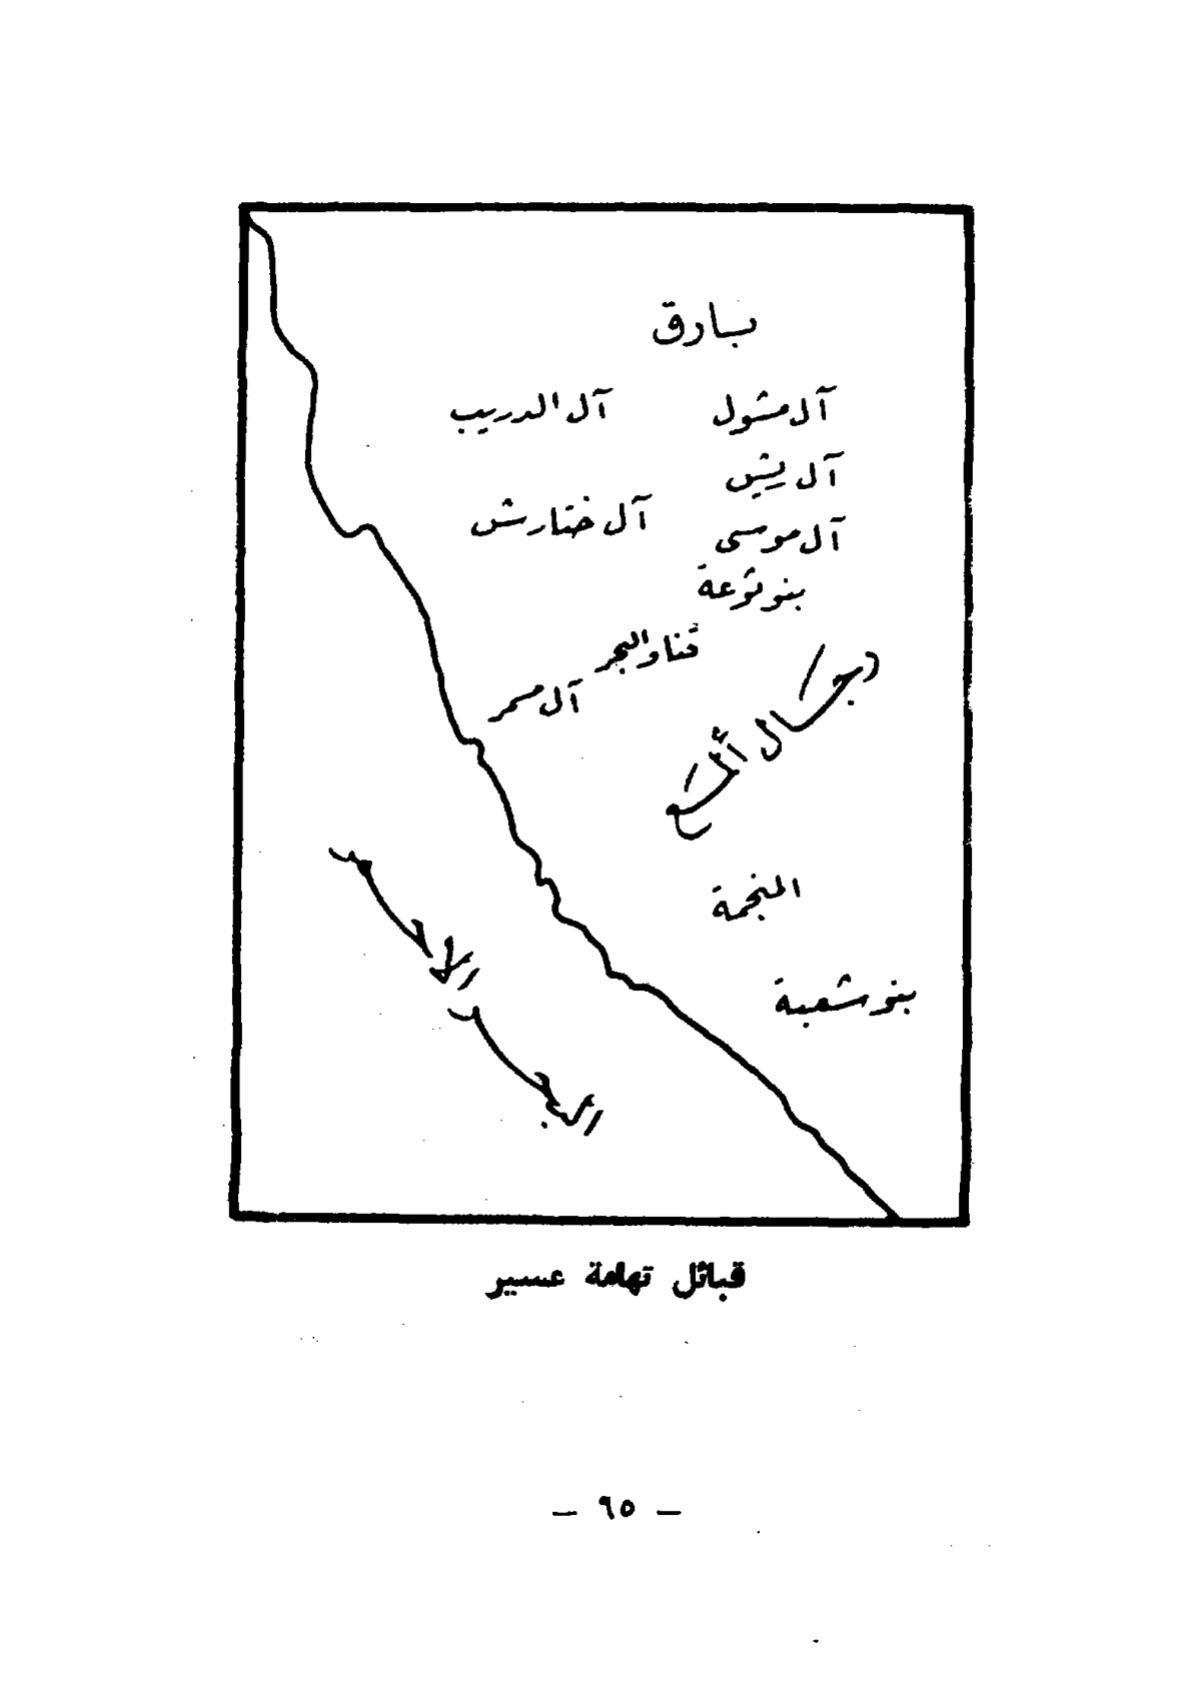 بارق
آل مشول
آل الدريب
آل يتيس
آل ختارش
آل موسى
بنو ثوعة
قنا والبحر
آل مسمر
رجال ألمع
المنجمة
بنو شعبة
البحر
الأحمر
قبائل تهامة عسير
— ٦٥ —